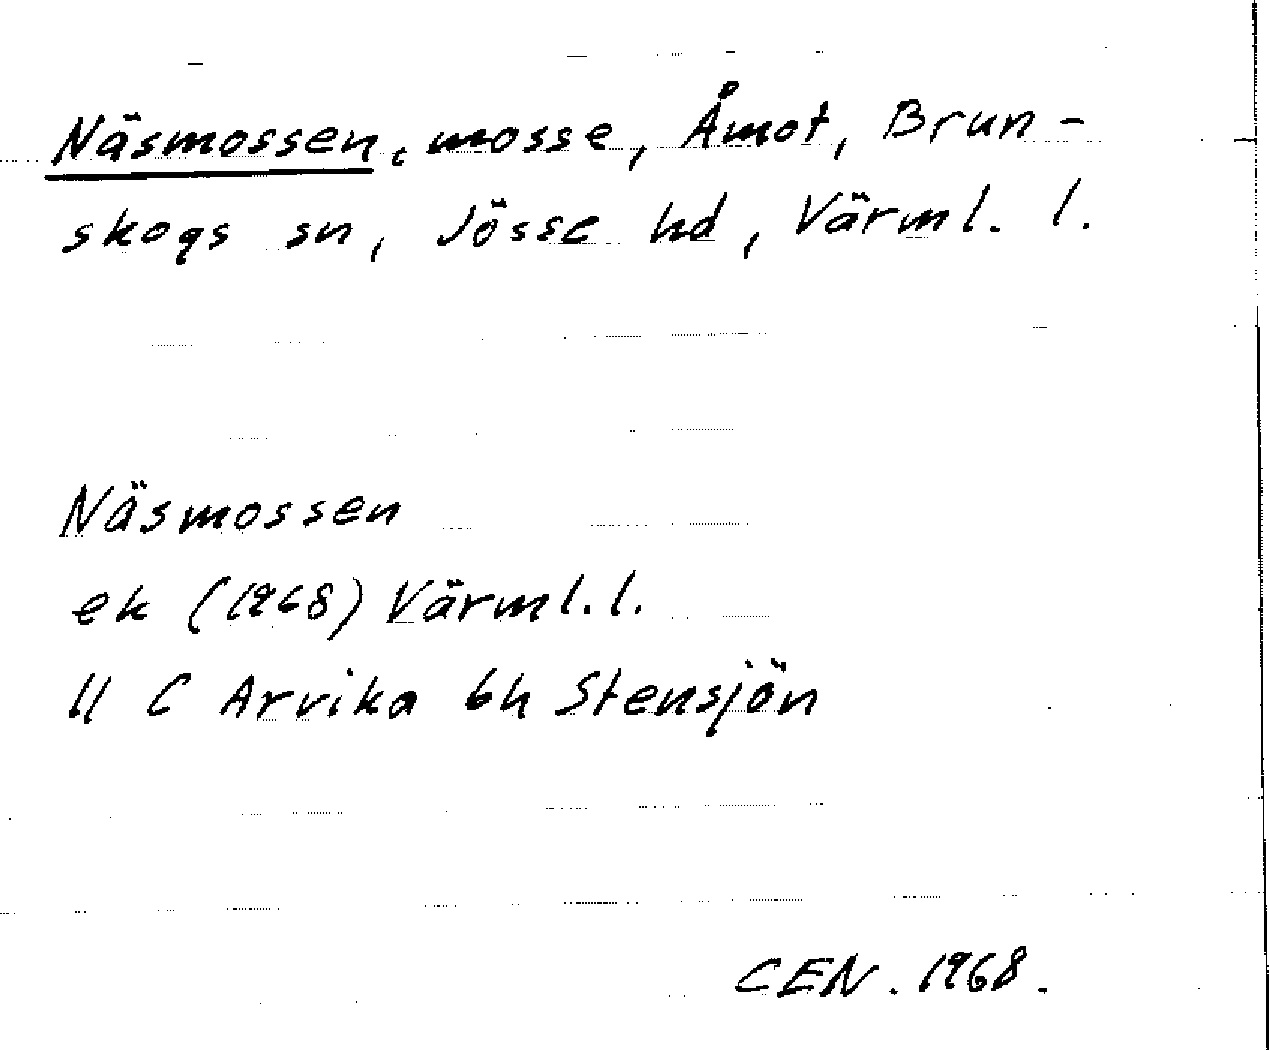 Näsmossen, mosse, Åmot, Brun-
skogs sn, Jösse hd, Värml. l.
Näsmossen
ek (1968) Värml. l.
11 C Arvika 6h Stensjön
CEN. 1968.